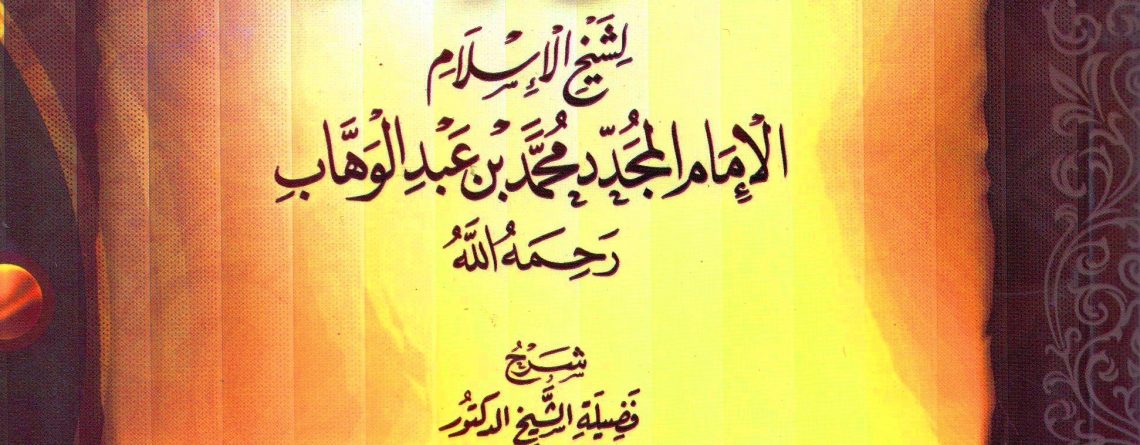 لِشَيْخِ الْإِسْلَامِ
الْإِمَامِ الْمُجَدِّدِ مُحَمَّدِ بْنِ عَبْدِ الْوَهَّابِ
رَحِمَهُ اللَّهُ
شَرْحُ
فَضِيلَةِ الشَّيْخِ الدكتُورِ